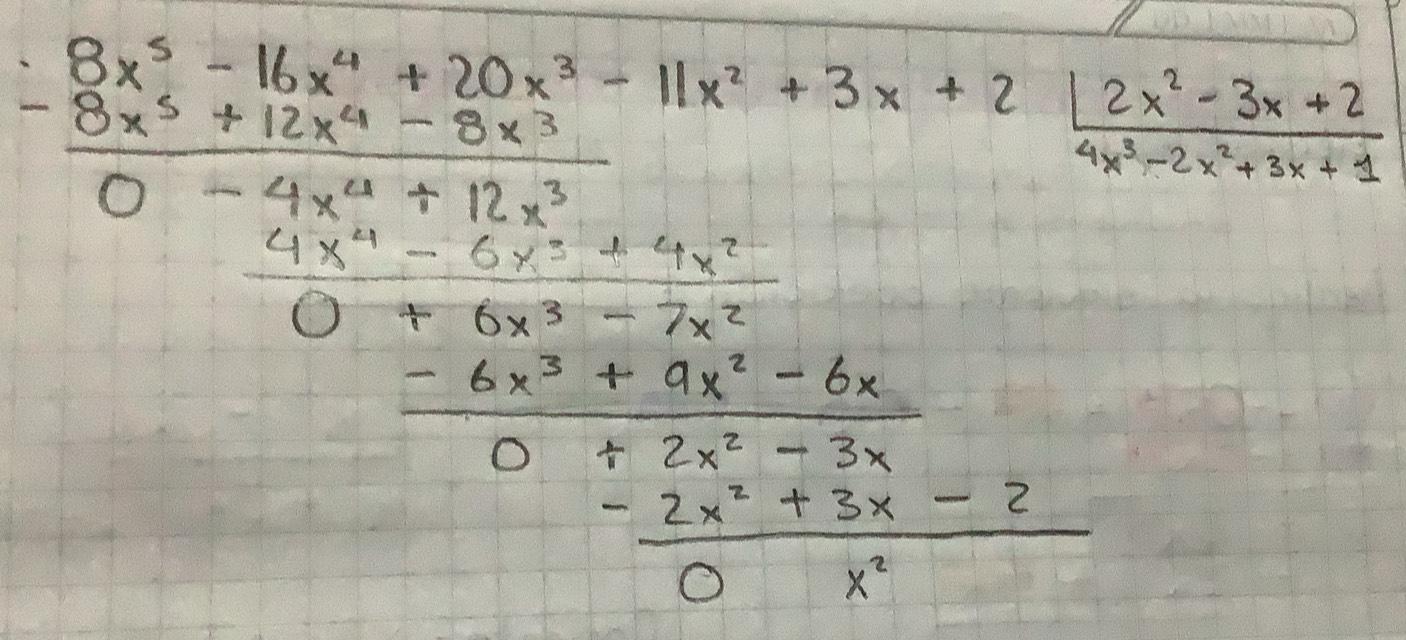 8x⁵ - 16x⁴ + 20x³ - 11x² + 3x + 2 | 2x² - 3x + 2
- 8x⁵ + 12x⁴ - 8x³
4x³ - 2x² + 3x + 1
0 - 4x⁴ + 12x³
4x⁴ - 6x³ + 4x²
0 + 6x³ - 7x²
- 6x³ + 9x² - 6x
0 + 2x² - 3x
- 2x² + 3x - 2
0 x²